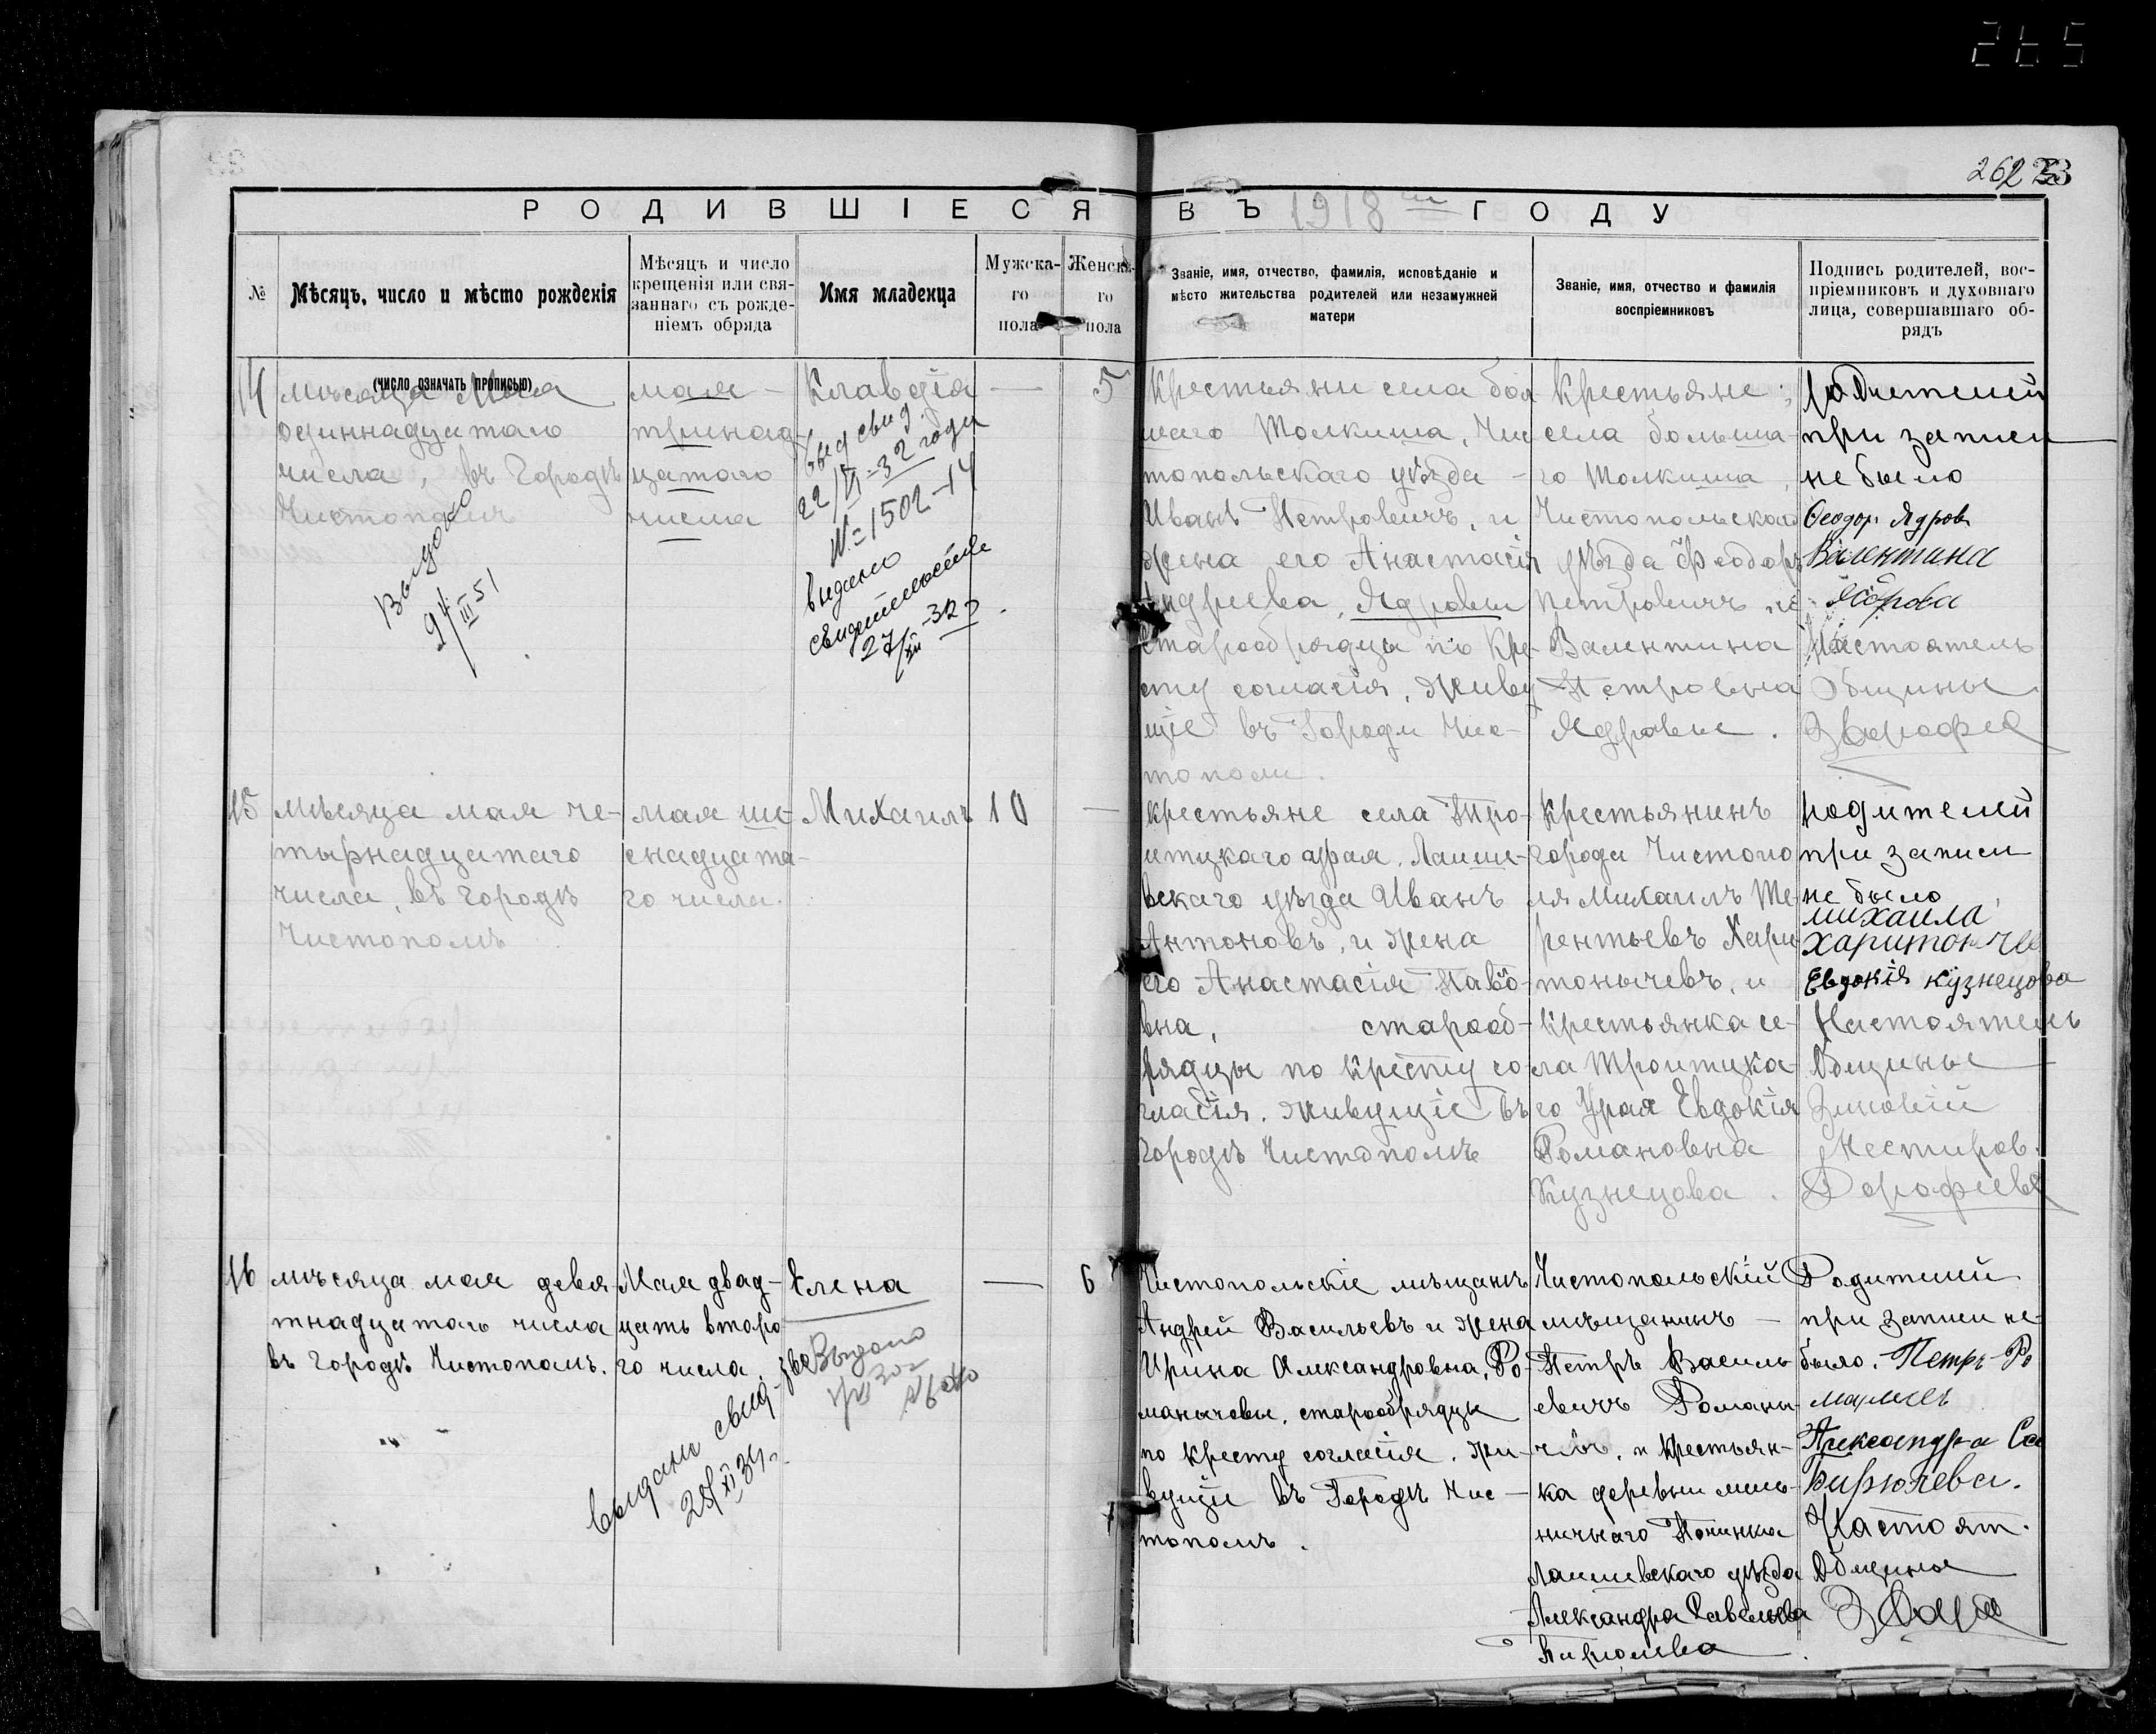 265
262 33
РОДИВШІЕСЯ ВЪ 1918 ГОДУ
№
Мѣсяцъ, число и мѣсто рожденія
(число означать прописью)
Мѣсяцъ и число
крещенія или свя-
заннаго съ рожде-
ніемъ обряда
Имя младенца
Мужска-
го
пола
Женска-
го
пола
Званіе, имя, отчество, фамилія, исповѣданіе и
мѣсто жительства родителей или незамужней
матери
Званіе, имя, отчество и фамилія
воспріемниковъ
Подпись родителей, вос-
пріемниковъ и духовнаго
лица, совершавшаго об-
рядъ
14
мѣсяца Мая
одиннадцатаго
числа, въ Городѣ
Чистополѣ
Выдано
9/III 51
мая
тринад-
цатого
числа
Клавдія
выд свид.
22/VI-32 года
№=1502-14
выдано
свидетельство
27/XII-32
—
5
крестьяни села бол
шаго Толкиша, Чис
топольскаго уѣзда -
Иванъ Петровичъ, и
жена его Анастасія
Андреева, Ядровы
старообрядцы по кре-
сту согласія, живу
щіе въ Городи Чис-
тополи.
Крестьяне;
села больша-
го Толкиша,
Чистопольскаго
уѣзда Феодоръ
Петровичъ и
Валентина
Петровна
Ядровы.
родителей
при записи
не было
Ѳеодоръ Ядровъ
Валентина
Ядрова
Настоятель
Общины
15
мѣсяца мая че-
тырнадцатаго
числа, въ городѣ
Чистополѣ
мая ше-
снадцата-
го числа.
Михаилъ
10
—
крестьяне села Тро-
итцкаго Урая, Лаише-
вскаго уѣзда Иванъ
Антоновъ, и жена
его Анастасія Павло-
вна, старооб-
рядцы по кресту со-
гласія, живущіе въ
городѣ Чистополѣ
Крестьянинъ
города Чистопо
ля Михаилъ Те-
рентьевъ Хари-
тонычевъ, и
Крестьянка се-
ла Троитцка-
го Урая Евдокія
Романовна
Кузнецова.
родителей
при записи
не было
михаила
харитонычев
Евдокія кузнецова
Настоятель
Общины
Зиновій
Нестиров.
Дорофиевъ
16
мѣсяца мая девя-
тнадцатаго числа
въ городѣ Чистополѣ.
Мая двад-
цать второ
го числа.
выдани свид-
28/XI 34г.
Елена
Выдано
—
6
Чистопольскіе мѣщанѣ
Андрей Васильевъ и жена
Ирина Александровна, Ро-
манычевы, старообрядцы
по кресту согласія, жи-
вущіе въ Городѣ Чис-
тополѣ.
Чистопольскій
мѣщанинъ —
Петръ Василь-
евичъ Романы-
чевъ, и крестьян-
ка деревни мель-
ничнаго Починка
Лаишевскаго уѣзда
Александра Савельева
Бирюлева
Родителей
при записи не-
было. Петръ Ро
Александра Са
Бирюлева.
Настоят.
Общины